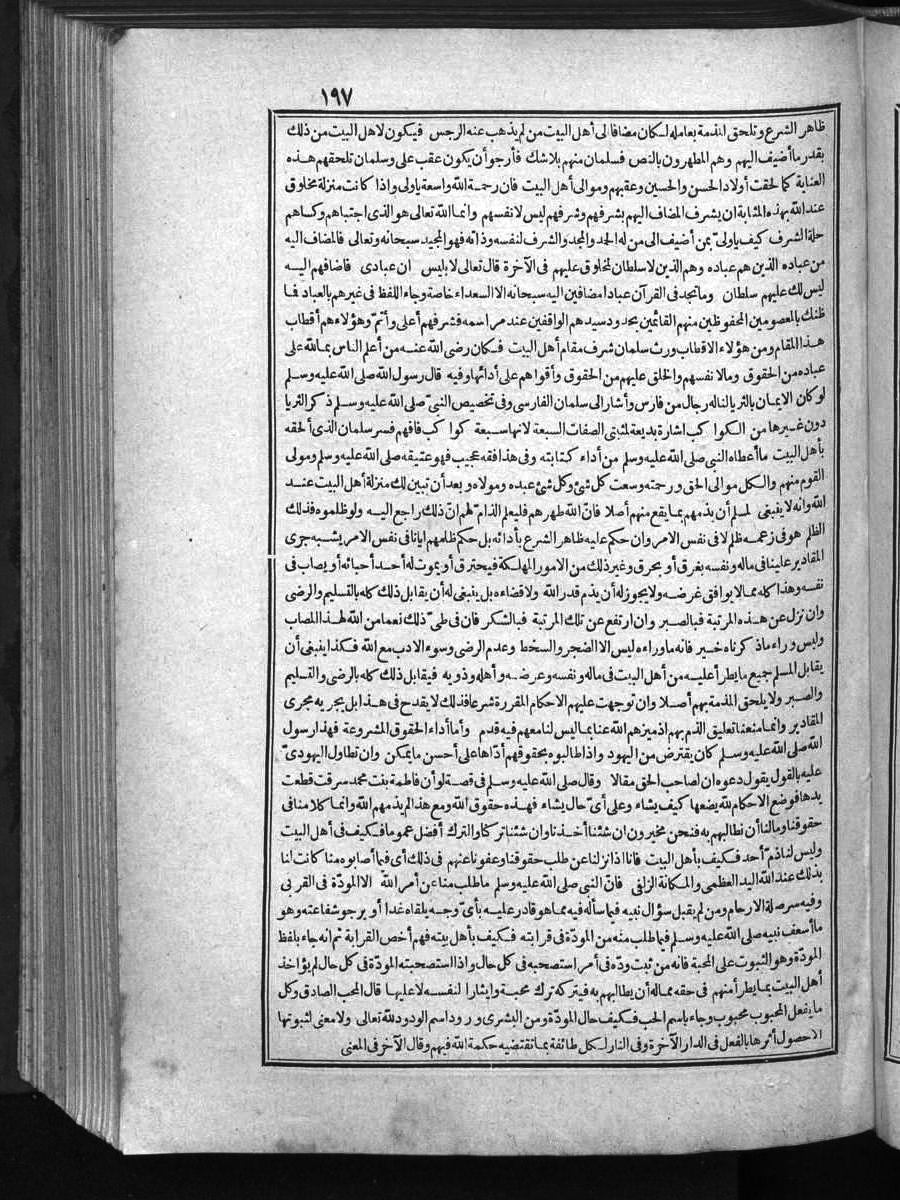 ١٩٧
ظاهر الشرع وتلحق المذمة بعامله لكان مضافا الى أهل البيت من لم يذهب عنه الرجس فيكون لاهل البيت من ذلك
بقدر ما أضيف اليهم وهم المطهرون بالنص فسلمان منهم بلاشك فأرجو أن يكون عقب على وسلمان تلحقهم هذه
العناية كما لحقت أولاد الحسن والحسين وعقبهم وموالى أهل البيت فان رحمة الله واسعة ياولى واذا كانت منزلة مخلوق
عند الله بهذه المثابة ان يشرف المضاف اليهم بشرفهم وشرفهم ليس لانفسهم وانما الله تعالى هو الذى اجتباهم وكساهم
حلة الشرف كيف ياولىّ بمن أضيف الى من له الحمد والمجد والشرف لنفسه وذاته فهو المجيد سبحانه وتعالى فالمضاف اليه
من عباده الذين هم عباده وهم الذين لا سلطان لمخلوق عليهم فى الآخرة قال تعالى لابليس ان عبادى فاضافهم اليه
ليس لك عليهم سلطان وما تجد فى القرآن عبادا مضافين اليه سبحانه الا السعداء خاصة وجاء اللفظ فى غيرهم بالعباد فما
ظنك بالمعصومين المحفوظين منهم القائمين بحدود سيدهم الواقفين عند مراسمه فشرفهم أعلى وأتمّ وهؤلاء هم أقطاب
هذا المقام ومن هؤلاء الاقطاب ورث سلمان شرف مقام أهل البيت فكان رضى الله عنه من أعلم الناس بما لله على
عباده من الحقوق وما لانفسهم والخلق عليهم من الحقوق وأقواهم على أدائها وفيه قال رسول الله صلى الله عليه وسلم
لو كان الايمان بالثريا لناله رجال من فارس وأشار الى سلمان الفارسى وفى تخصيص النبىّ صلى الله عليه وسلم ذكر الثريا
دون غيرها من الكواكب اشارة بديعة لمثبتى الصفات السبعة لانها سبعة كواكب فافهم فسر سلمان الذى ألحقه
بأهل البيت ما أعطاه النبى صلى الله عليه وسلم من أداء كتابته وفى هذا فقه عجيب فهو عتيقه صلى الله عليه وسلم ومولى
القوم منهم والكل موالى الحق ورحمته وسعت كل شئ وكل شئ عبده ومولاه وبعد أن تبين لك منزلة أهل البيت عند
الله وانه لا ينبغى لمسلم أن يذمهم بما يقع منهم أصلا فانّ الله طهرهم فليعلم الذامّ لهم انّ ذلك راجع اليه ولو ظلموه فذلك
الظلم هو فى زعمه ظلم لا فى نفس الامر وان حكم عليه ظاهر الشرع بأدائه بل حكم ظلمهم ايانا فى نفس الامر يشبه جرى
المقادير علينا فى ماله ونفسه بغرق أو بحرق وغير ذلك من الامور المهلكة فيحترق أو يموت له أحد أحبائه أو يصاب فى
نفسه وهذا كله مما لا يوافق غرضه ولا يجوز له أن يذم قدر الله ولا قضاءه بل ينبغى له أن يقابل ذلك كله بالتسليم والرضى
وان نزل عن هذه المرتبة فبالصبر وان ارتفع عن تلك المرتبة فبالشكر فان فى طىّ ذلك نعما من الله لهذا المصاب
وليس وراء ما ذكرناه خير فانه ما وراءه ليس الا الضجر والسخط وعدم الرضى وسوء الادب مع الله فكذا ينبغى أن
يقابل المسلم جميع ما يطرأ عليه من أهل البيت فى ماله ونفسه وعرضه وأهله وذويه فيقابل ذلك كله بالرضى والتسليم
والصبر ولا يلحق المذمة بهم أصلا وان توجهت عليهم الاحكام المقررة شرعا فذلك لا يقدح فى هذا بل يجريه مجرى
المقادير وانما منعنا تعليق الذم بهم اذ ميزهم الله عنا بما ليس لنا معهم فيه قدم وأما أداء الحقوق المشروعة فهذا رسول
الله صلى الله عليه وسلم كان يقترض من اليهود واذا طالبوه بحقوقهم أدّاها على أحسن ما يمكن وان تطاول اليهودىّ
عليه بالقول يقول دعوه ان لصاحب الحق مقالا وقال صلى الله عليه وسلم فى قصة لو أن فاطمة بنت محمد سرقت قطعت
يدها فوضع الاحكام لله يضعها كيف يشاء وعلى أىّ حال يشاء فهذه حقوق الله ومع هذا لم يذمهم الله وانما كلامنا فى
حقوقنا وما لنا أن نطالبهم به فنحن مخيرون ان شئنا أخذنا وان شئنا تركنا والترك أفضل عموما فكيف فى أهل البيت
وليس لنا ذمّ أحد فكيف بأهل البيت فانا اذا نزلنا عن طلب حقوقنا وعفونا عنهم فى ذلك أى فيما أصابوه منا كانت لنا
بذلك عند الله اليد العظمى والمكانة الزلفى فانّ النبى صلى الله عليه وسلم ما طلب منا عن أمر الله الا المودّة فى القربى
وفيه سر صلة الارحام ومن لم يقبل سؤال نبيه فيما سأله فيه مما هو قادر عليه بأىّ وجه يلقاه غدا أو يرجو شفاعته وهو
ما أسعف نبيه صلى الله عليه وسلم فيما طلب منه من المودّة فى قرابته فكيف بأهل بيته فهم أخص القرابة ثم انه جاء بلفظ
المودّة وهو الثبوت على المحبة فانه من ثبت ودّه فى أمر استصحبه فى كل حال واذا استصحبته المودّة فى كل حال لم يؤاخذ
أهل البيت بما يطرأ منهم فى حقه مما له أن يطالبهم به فيتركه ترك محبة وايثارا لنفسه لا عليها قال المحب الصادق وكل
ما يفعل المحبوب محبوب وجاء باسم الحب فكيف حال المودّة ومن البشرى ورود اسم الودود لله تعالى ولا معنى لثبوتها
الا حصول أثرها بالفعل فى الدار الآخرة وفى النار لكل طائفة بما تقتضيه حكمة الله فيهم وقال الآخر فى المعنى